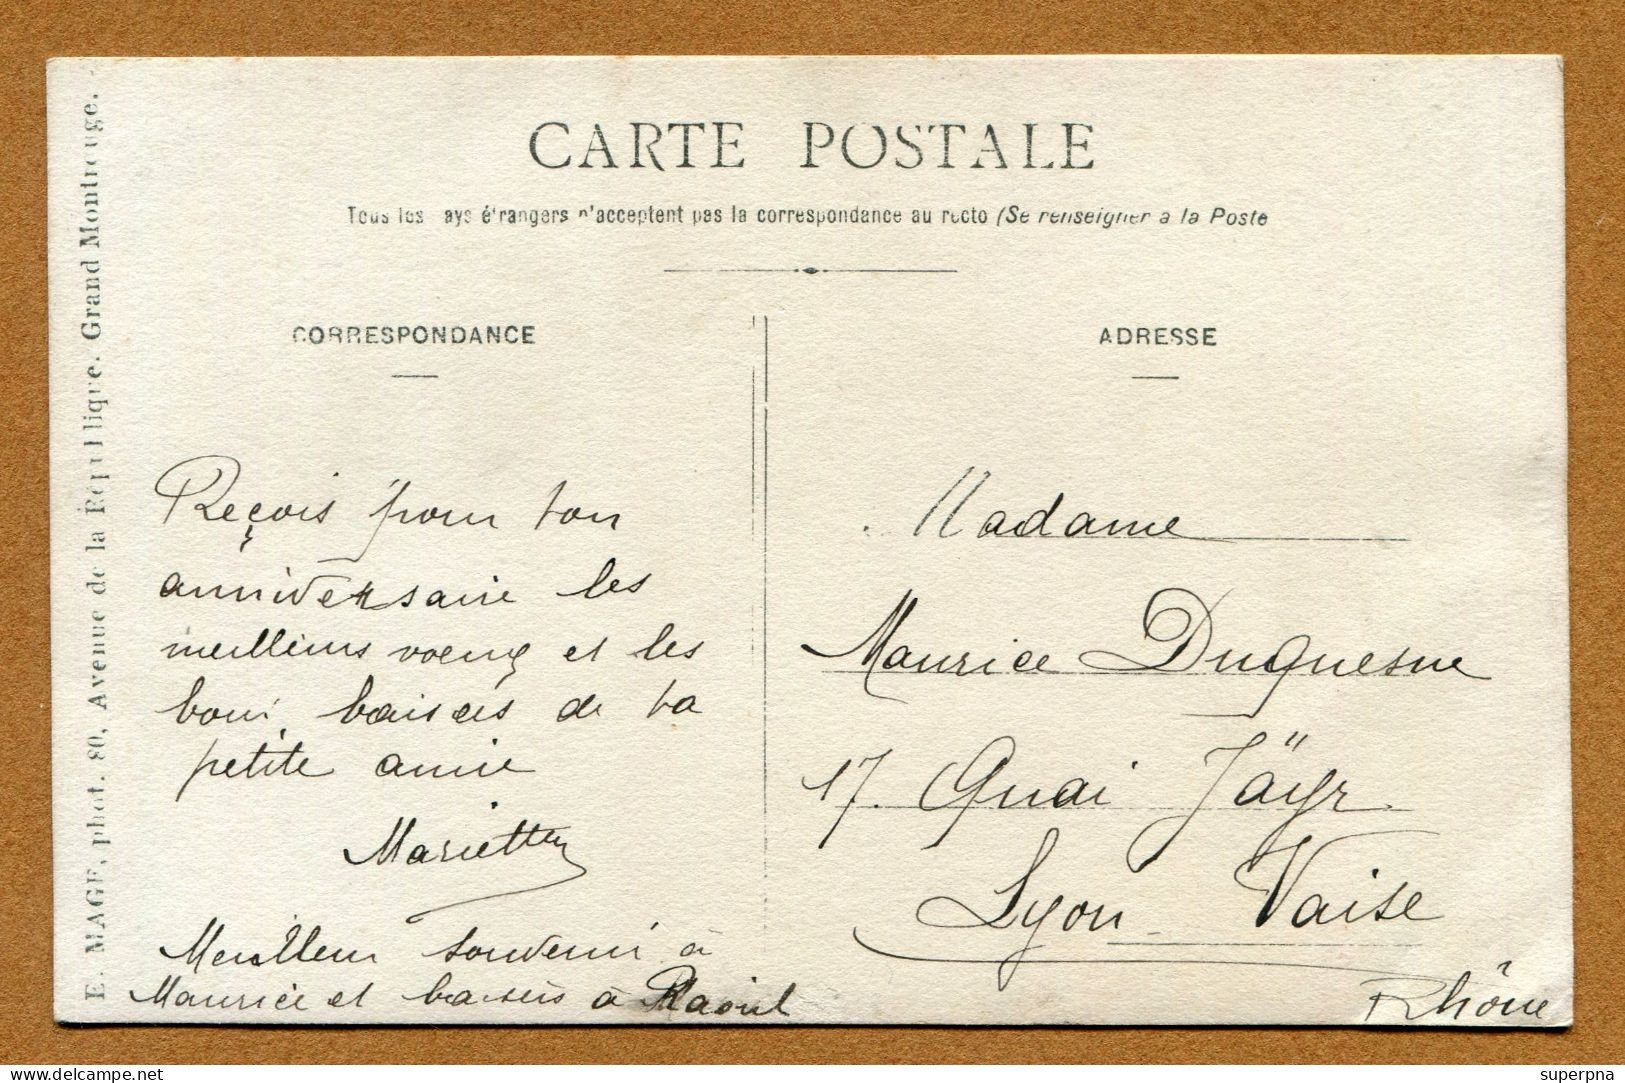 CARTE POSTALE
Tous les pays étrangers n'acceptent pas la correspondance au recto (Se renseigner à la Poste
CORRESPONDANCE
Reçois pour ton
anniversaire les
meilleurs voeux et les
bons baisers de ta
petite amie
Mariette
Meilleur souvenir à
Maurice et baisers à Raoul
ADRESSE
Madame
Maurice Duquesne
17. Quai Jäyr
Lyon Vaise
Rhône
E. MAGE, phot. 80, Avenue de la République. Grand Montrouge.
delcampe.net
superpna